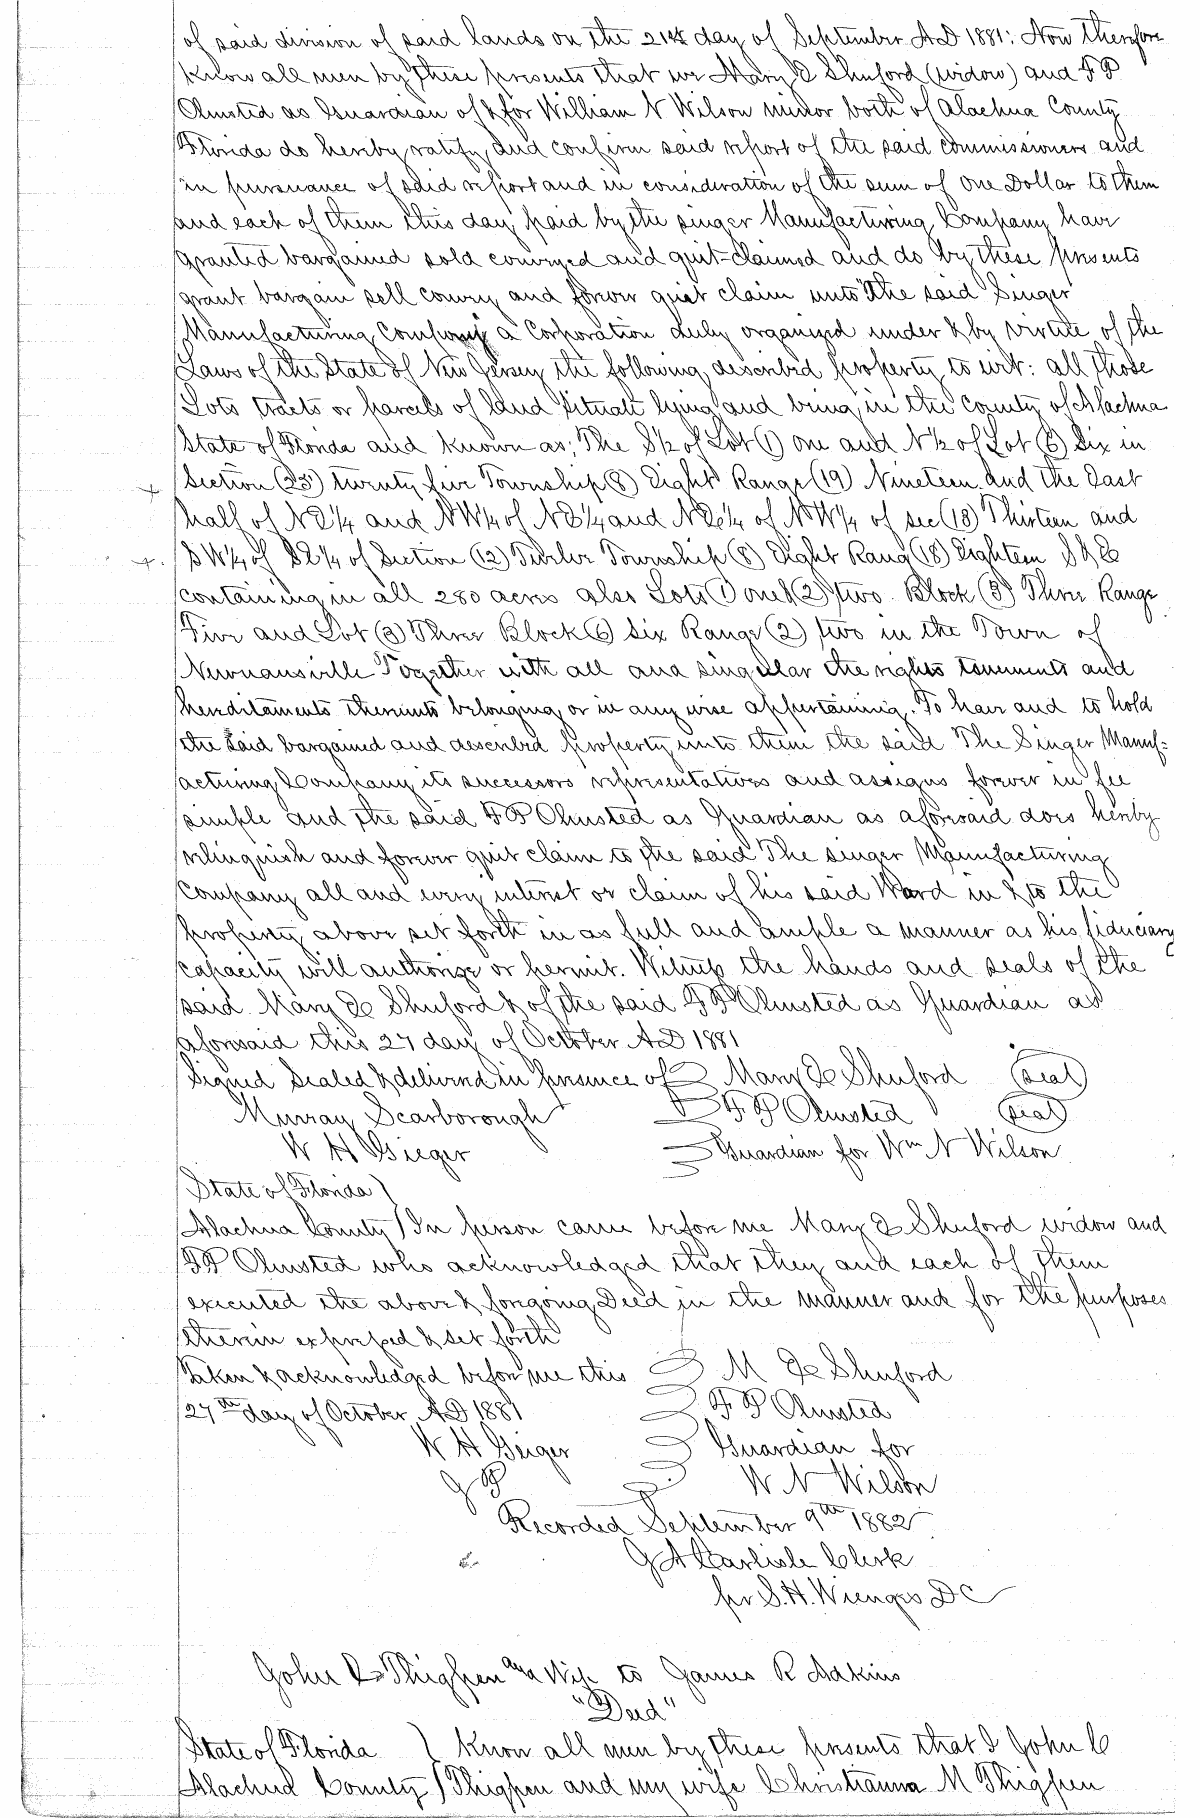 of said division of said lands on the 21st day of September AD 1881: Now therefore
Know all men by these presents that we Mary E Shuford (widow) and F P
Olmsted as Guardian of & for William N Wilson minor both of Alachua County
Florida do hereby ratify and confirm said report of the said commissioners and
in pursuance of said report and in consideration of the sum of one Dollar to them
and each of them this day paid by the singer Manufacturing Company have
granted bargained sold conveyed and quit-claimed and do by these presents
grant bargain sell convey and forever quit claim unto The said Singer
Manufacturing Company a Corporation duly organized under & by virtue of the
Laws of the State of New Jersey the following described property to wit: all those
Lots tracts or parcels of land situate lying and being in the County of Alachua
State of Florida and known as; The S½ of Lot (1) one and N½ of Lot (6) Six in
Section (25) twenty five Township (8) Eight Range (19) Nineteen and the East
half of NE¼ and NW¼ of NE¼ and NE¼ of NW¼ of sec (13) Thirteen and
SW¼ of SE¼ of Section (12) Twelve Township (8) Eight Rang (18) Eighteen S & E
containing in all 280 acres also Lots (1) one & (2) two Block (3) Three Range
Five and Lot (3) Three Block (6) Six Range (2) two in the Town of
Newnansville Together with all and singular the rights tenements and
hereditaments thereunto belonging or in any wise appertaining. To have and to hold
the said bargained and described property unto them the said The Singer Manuf-
acturing Company its successors representatives and assigns forever in fee
simple and the said F P Olmsted as Guardian as aforesaid does hereby
relinquish and forever quit claim to the said The singer Manufacturing
Company all and every interest or claim of his said Ward in & to the
property above set forth in as full and ample a manner as his fiduciary
capacity will authorize or permit. Witness the hands and seals of the
said Mary E Shuford & of the said F P Olmsted as Guardian as
aforesaid this 27 day of October AD 1881
Signed Sealed & delivered in presence of Mary E Shuford (seal)
Murray Scarborough F P Olmsted (seal)
W H Gieger Guardian for Wm N Wilson
State of Florida )
Alachua County ) In person came before me Mary E Shuford widow and
F P Olmsted who acknowledged that they and each of them
executed the above & foregoing Deed in the manner and for the purposes
therein expressed & set forth
Taken & acknowledged before me this M E Shuford
27th day of October AD 1881 F P Olmsted
W H Geiger Guardian for
J P W N Wilson
Recorded September 9th 1882
J A Carlisle Clerk
pr S. H. Wienges D C
John C Thigpen and Wife to James R Adkins
"Deed"
State of Florida ) Know all men by these presents that I John C
Alachua County ) Thigpen and my wife Christianna M Thigpen